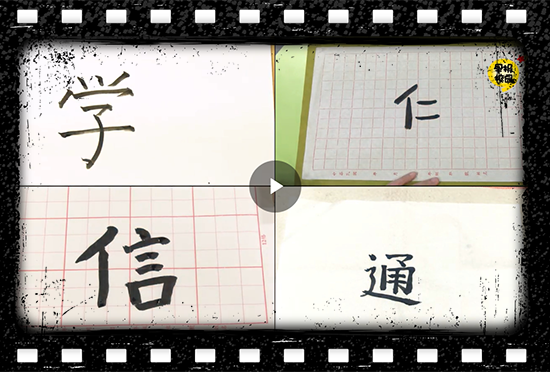 学
仁
信
通